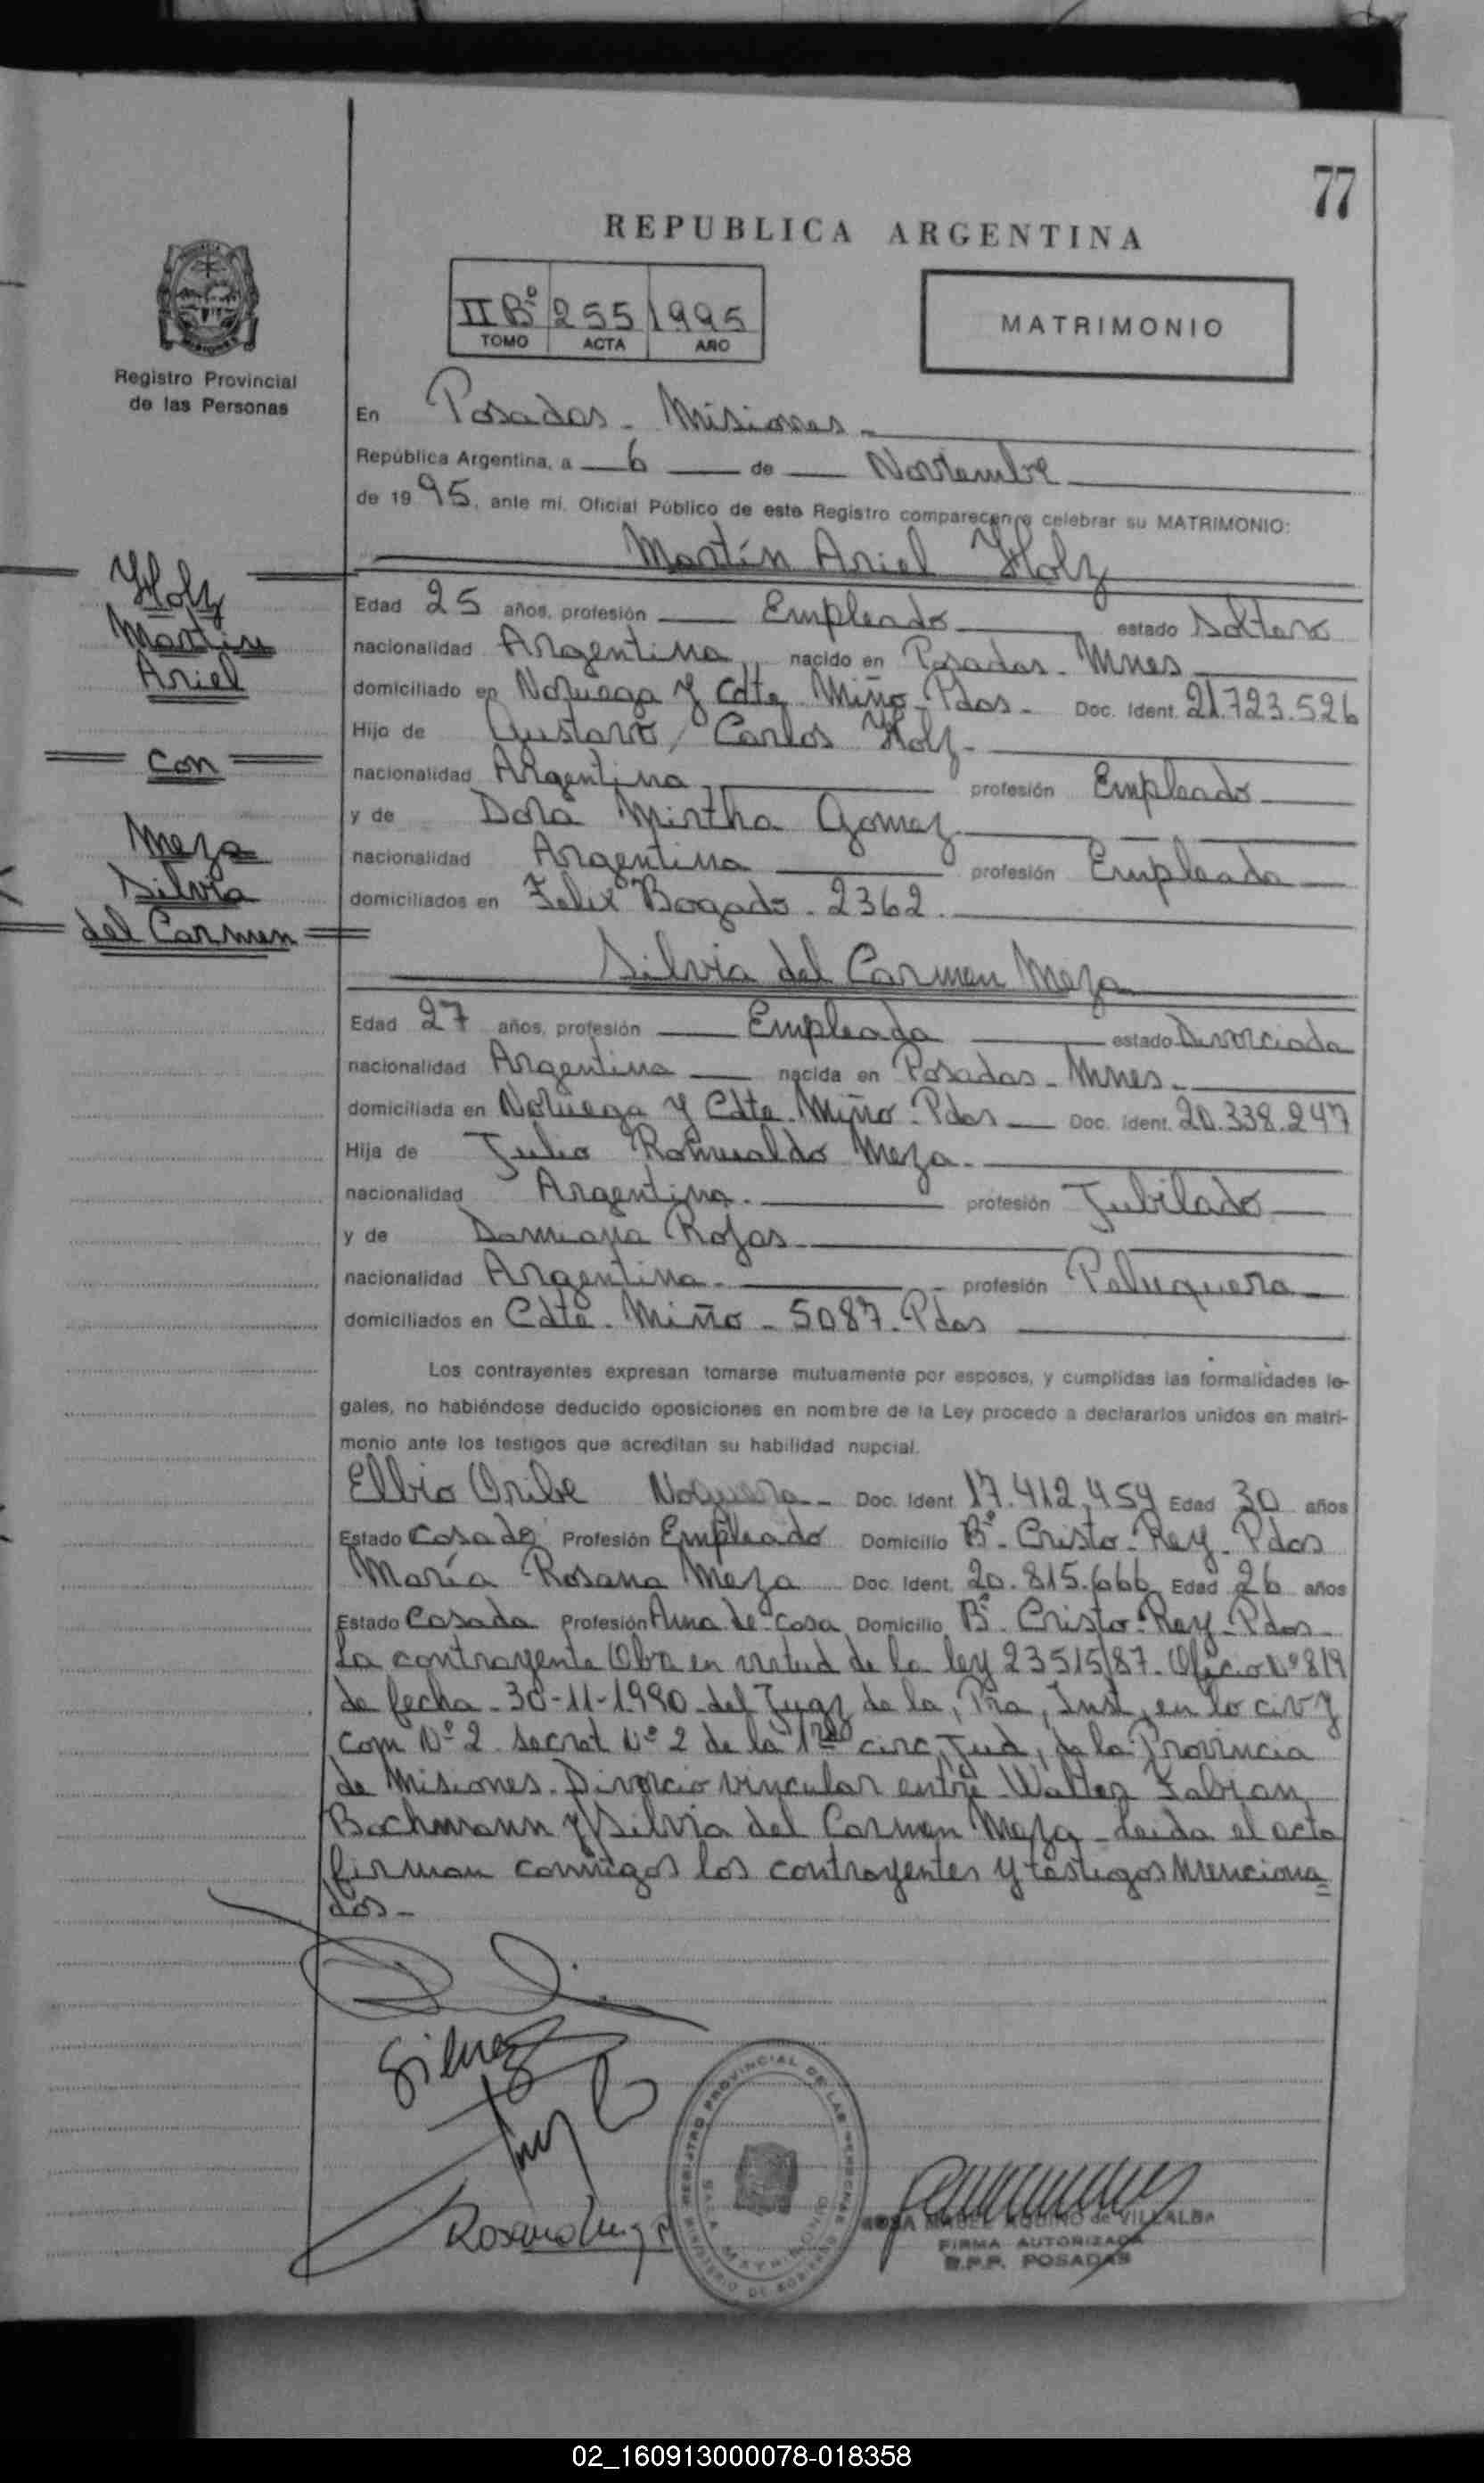 77
REPUBLICA ARGENTINA
II Bº 255 1995
TOMO ACTA AÑO
MATRIMONIO
Registro Provincial
de las Personas
En Posadas - Misiones -
República Argentina, a 6 de Noviembre
de 1995, ante mí, Oficial Público de este Registro comparecen a celebrar su MATRIMONIO:
Martín Ariel Holz
Holz
Martín
Ariel
con
Meza
Silvia
del Carmen
Edad 25 años, profesión Empleado estado Soltero
nacionalidad Argentina nacido en Posadas - Mnes
domiciliado en Noruega y Cdte Miño - Pdas - Doc. Ident. 21.723.526
Hijo de Gustavo Carlos Holz -
nacionalidad Argentina profesión Empleado
y de Dora Mirtha Gomez
nacionalidad Argentina profesión Empleada
domiciliados en Felix Bogado - 2362
Silvia del Carmen Meza
Edad 27 años, profesión Empleada estado Divorciada
nacionalidad Argentina nacida en Posadas - Mnes -
domiciliada en Noruega y Cdte. Miño - Pdas Doc. Ident. 20.338.247
Hija de Julio Romualdo Meza -
nacionalidad Argentina - profesión Jubilado
y de Damiana Rojas
nacionalidad Argentina - profesión Peluquera
domiciliados en Cdte. Miño - 5087 - Pdas
Los contrayentes expresan tomarse mutuamente por esposos, y cumplidas las formalidades le-
gales, no habiéndose deducido oposiciones en nombre de la Ley procedo a declararlos unidos en matri-
monio ante los testigos que acreditan su habilidad nupcial.
Elbio Oribe Noguera - Doc. Ident. 17.412.454 Edad 30 años
Estado Casado Profesión Empleado Domicilio Bº - Cristo - Rey - Pdas
María Rosana Meza Doc. Ident. 20.815.666 Edad 26 años
Estado Casada Profesión Ama de Casa Domicilio Bº - Cristo - Rey - Pdas -
La contrayente Obra en virtud de la ley 23515/87 - Oficio Nº 819
de fecha - 30-11-1990 - del Juzg de la, Pra, Inst, en lo civ y
Com Nº 2 Secret Nº 2 de la 1ra circ, Jud, de la Provincia
de Misiones - Divorcio vincular entre Walter Fabian
Bachmann y Silvia del Carmen Meza - Leida el acta
firman conmigos los contrayentes y testigos menciona=
dos -
Silvia
Rosana
REGISTRO PROVINCIAL DE LAS PERSONAS
MINISTERIO DE GOBIERNO
MATRIMONIO
ROSA MABEL AQUINO de VILLALBA
FIRMA AUTORIZADA
R.P.P. POSADAS
02_160913000078-018358